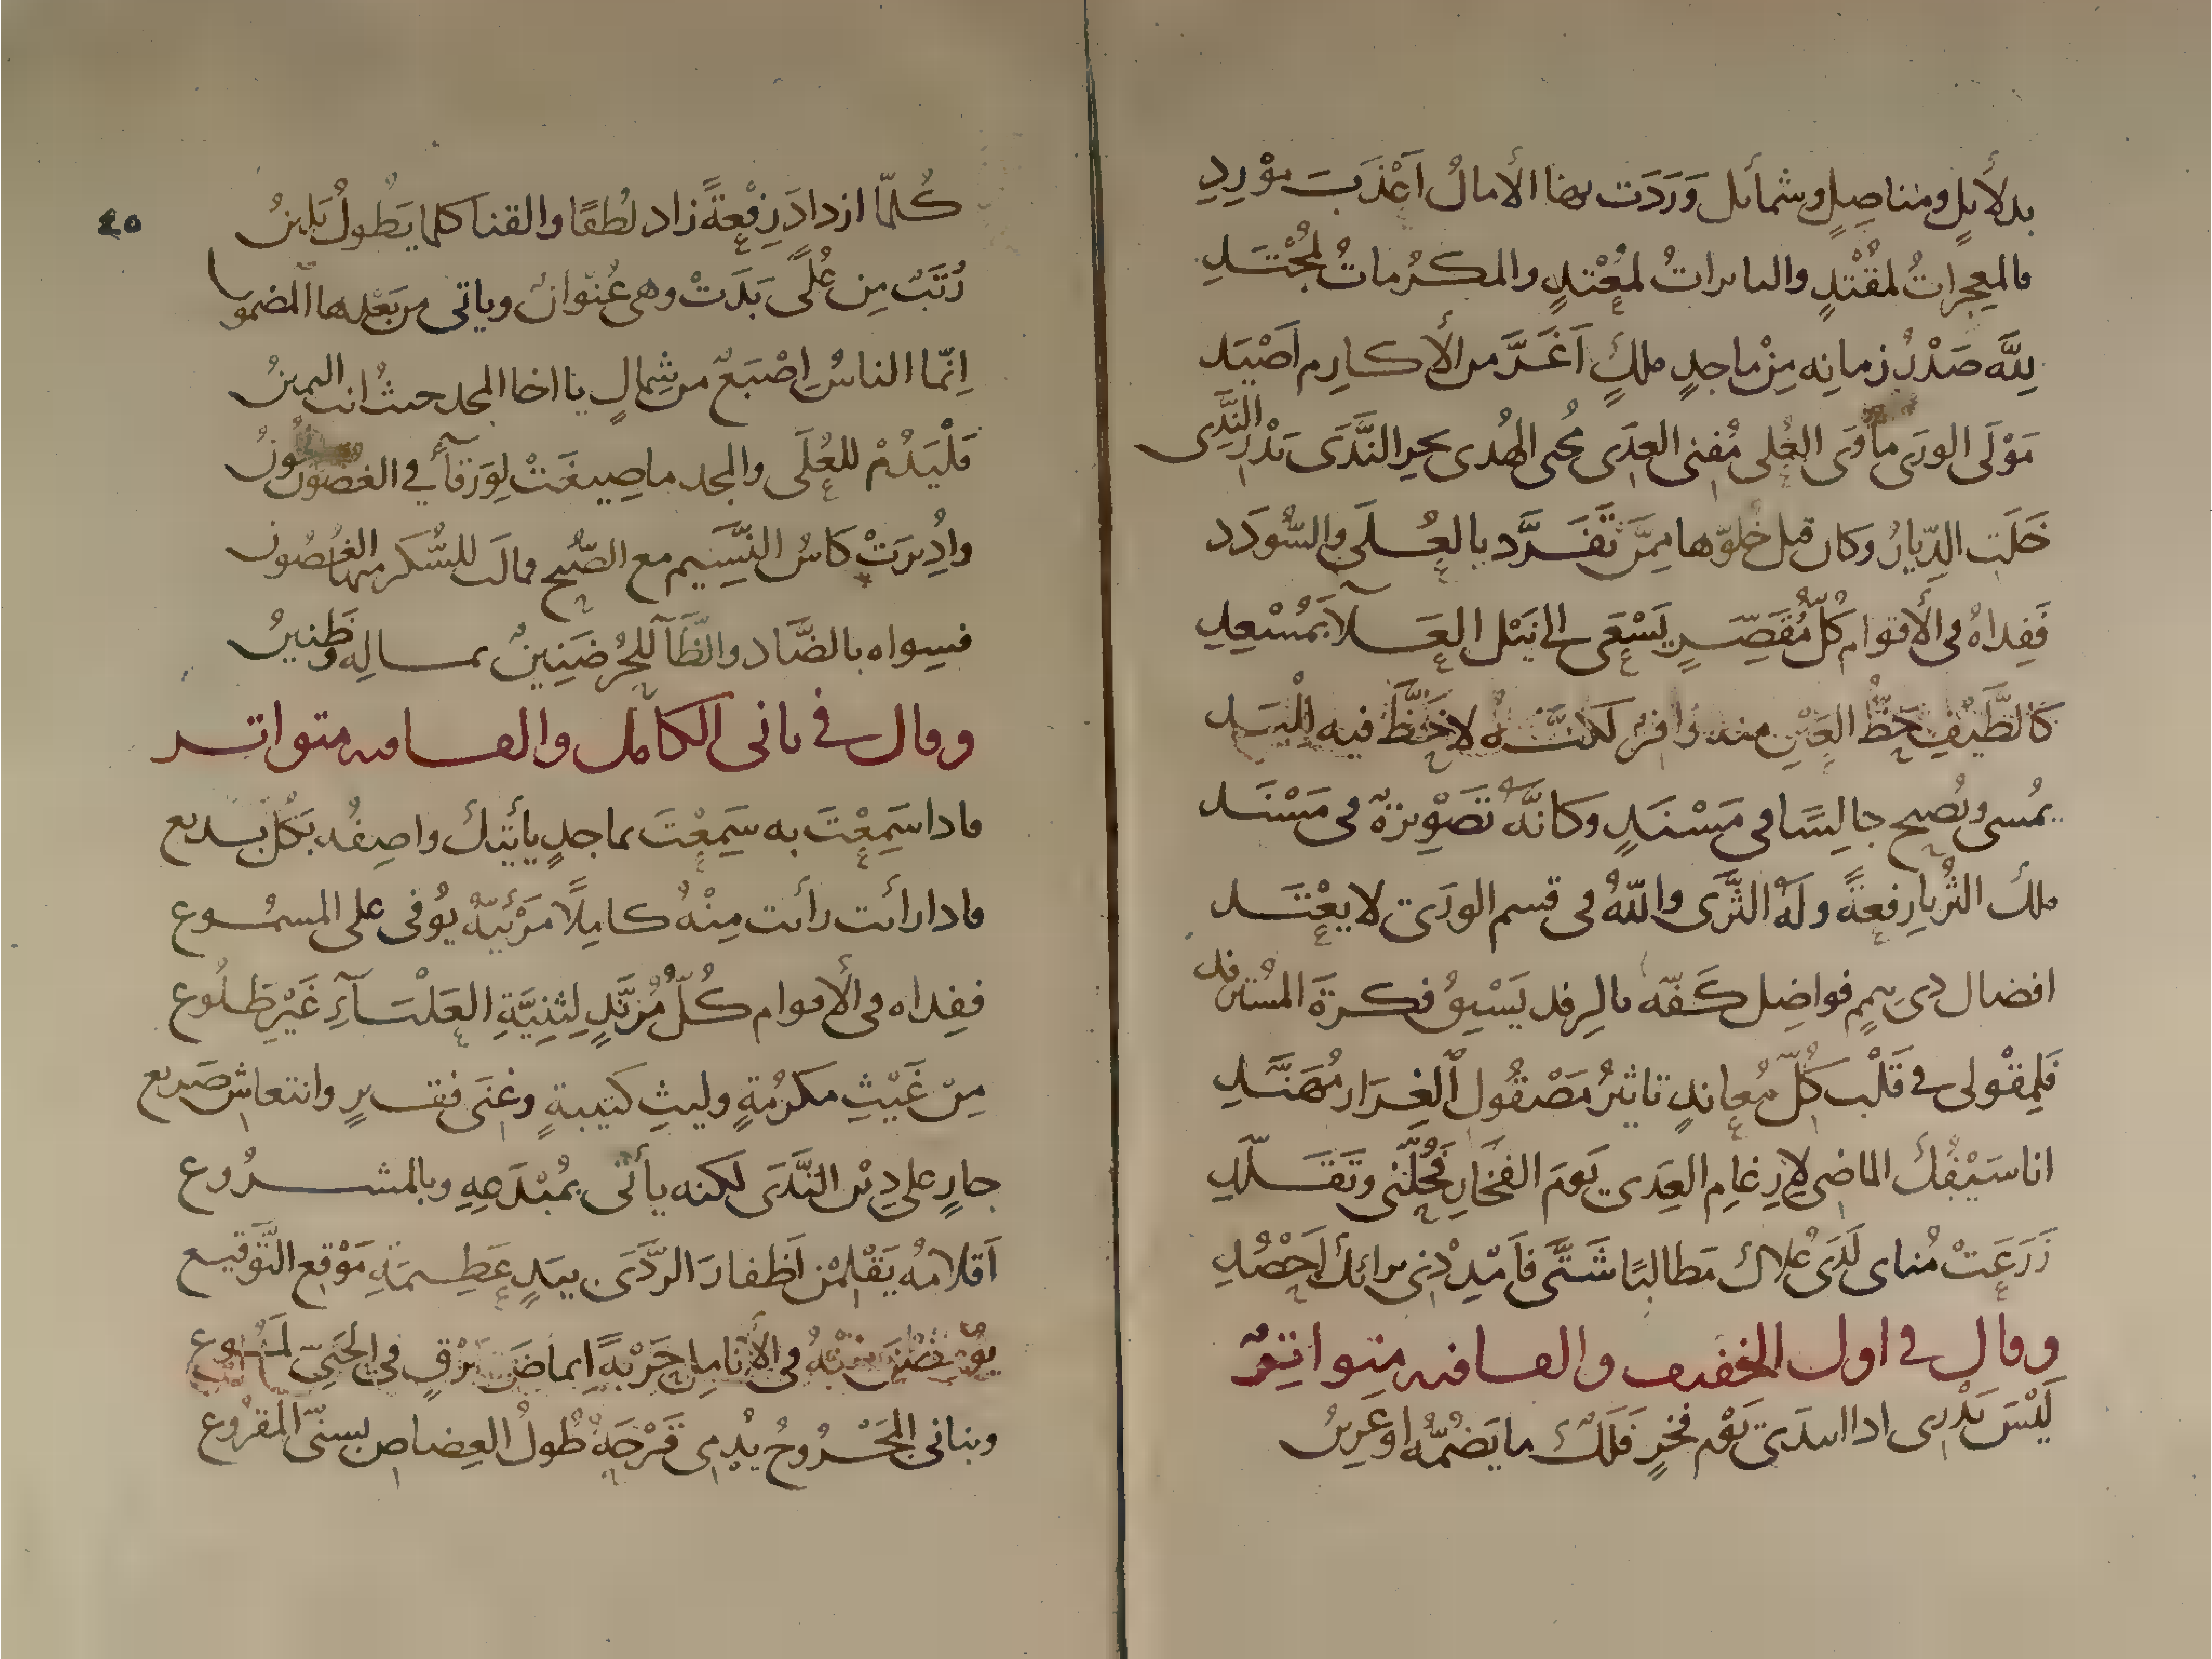 بدلائلٍ ومناصِلٍ وشمائل وَرَدَت بها الأمالُ أعْذَبَ مَوْرِدِ
فالمعجزاتُ لمُقْتدٍ والنائراتُ لمُعْتدٍ والمكرُماتُ لمُجْتَدِ
لِلَّه صَدْرُ زمانِه مِنْ ماجدٍ ملكٍ اَغَرَّ من الأكارِم اَصْيَد
مَوْلَى الورَى مأوَى العُلى مُفنى العِدَى مُحيى الهُدى بحر النَّدَى بَدْر النَّدِى
خَلَت الدِّيارُ وكان قبل خُلوّها مِمَّن تَفَرَّد بالعُلَى والسُّودَد
فَفِداهُ فى الأقوام كُلُّ مُقَصِّرٍ يَسْعَى الى نَيْل العَلآ بمُسْعِدِ
كالطَّيْفِ حَظُّ العَيْنِ منه وافرٌ لكنَّهُ لا حَظَّ فيه لِلْيَد
يمُسى ويُصبح جالِسًا فى مَسْنَدٍ وكانَّهُ تَصْوِيرَةٌ فى مَسْنَد
ملك الثُريا رِفعةً ولَهُ الثَّرَى واللهُ فى قسم الورَى لا يعْتَد
افضال ذى فواضِل كَفّه بالرِفد يَسْبِقُ فكرةَ المُسْترفد
فَلِمِقْولى فى قَلْب كُلِّ مُعاندٍ تاثيرُ مَصْقُول الغِرَار مُهَنَّدِ
انا سَيْفُكَ الماضى لإرغامِ العِدَى يَومَ الفَخَارِ فَحَلِّنى وتَقَلَّدِ
زَرَعَتْ مُناى لَدَى عُلاك مَطالبًا شَتَّى فَاَمْدِدْنى برائك اَحْصُدِ
وقال فى اول الخفيف والقافيه متواتِرٌ
لَيْسَ يَدْرِى اذا انبدَى يَوْم فخرٍ فَلَكٌ ما يَضُمُّه او عَرينُ
٤٥
كُلمّا ازدادَ رِفْعةً زاد لُطفًا والقنا كلما يَطُولُ يَلينُ
رُتَبٌ مِن عُلًى بَدَتْ وهى عُنْوانٌ وياتى من بَعْدِها المضمون
اِنمّا الناسُ اِصْبَعٌ من شِمالٍ يا اخا المجد حيثُ انت اليمينُ
فَلْيَدُمْ للعُلَى والمجد ما صِيغَتْ لِوَرقآءَ في الغصون لُحُونُ
واُدِيرَتْ كاسُ النَّسِيَم مع الصُّبح فمالت للسُّكر منها الغُصُون
فسِواه بالضَّاد والظَآ للحُر ضَنِينٌ بمــالِه وظَنينُ
وقال فى ثانى الكامل والقافيه متواتــر
فاذا سَمِعْتَ به سَمِعْتَ بماجدٍ يأتيك واصِفُه بكُل بديع
فاذا رأيت رأيت مِنْهُ كامِلاً مَرْئيّهُ يُوفى على المسمُوع
ففِداه فى الأقوام كُلُّ مُزنَّدٍ لِثنِيَّةِ العَلْيَآءِ غَيْرِ طَلُوع
مِنْ غَيْثِ مكرُمةٍ وليثِ كتيبةٍ وغِنَى فقيرٍ وانتعاش صَريع
جارٍ على دِيْن النَّدَى لكنه يأتى بمُبْدَعِهِ وبالمشرُوع
اَقلامُه يَقْلِمْن اَظفارَ الرَّدَى بيَدٍ عَظِيمَةِ مَوْقِع التَّوقيع
يُومِضْنَ مِنْهُ فى الأنامِلِ جَرْيَةً اِيماضَ بَرْقٍ فى الحَبِىّ لَمُوع
وبنانى المَجْرُوحُ يُدْمِى قَرْحَهُ طُولُ العِضاض بسنّىَ المَقْرُوع